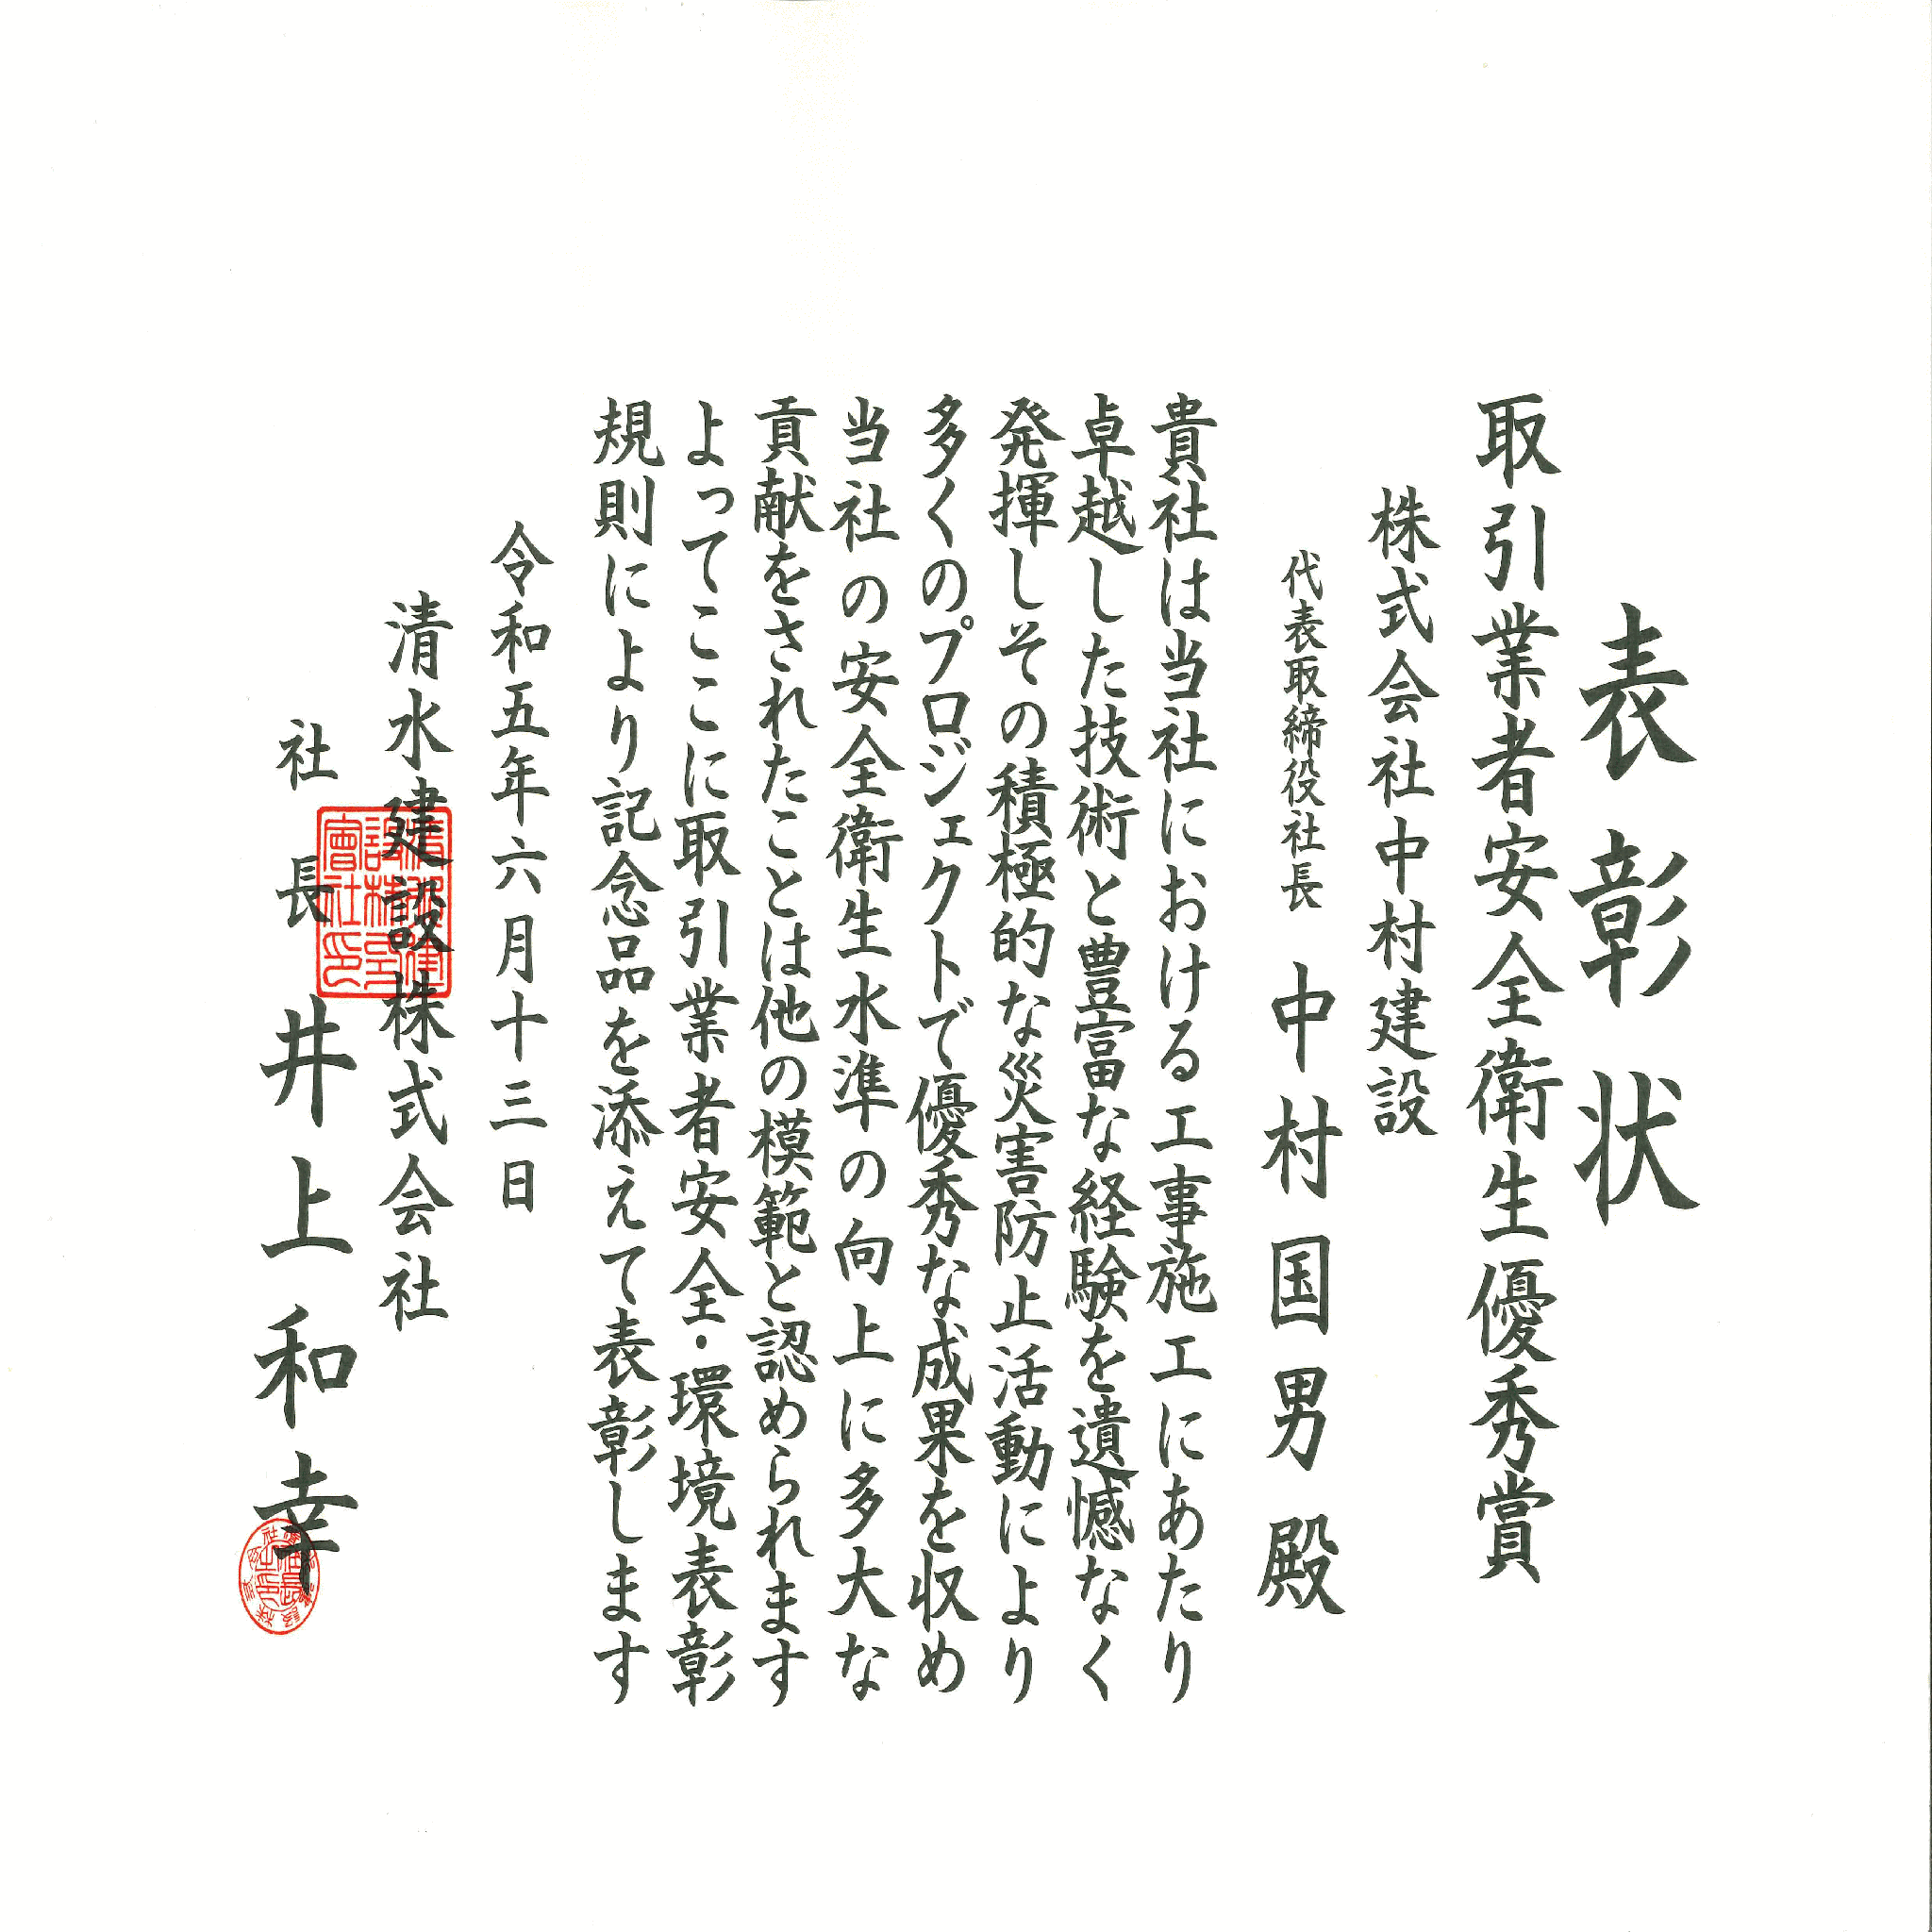 表彰状
取引業者安全衛生優秀賞
株式会社中村建設
代表取締役社長 中村国男殿
貴社は当社における工事施工にあたり
卓越した技術と豊富な経験を遺憾なく
発揮しその積極的な災害防止活動により
多くのプロジェクトで優秀な成果を収め
当社の安全衛生水準の向上に多大な
貢献をされたことは他の模範と認められます
よってここに取引業者安全・環境表彰
規則により記念品を添えて表彰します
令和五年六月十三日
清水建設株式会社
社長 井上和幸